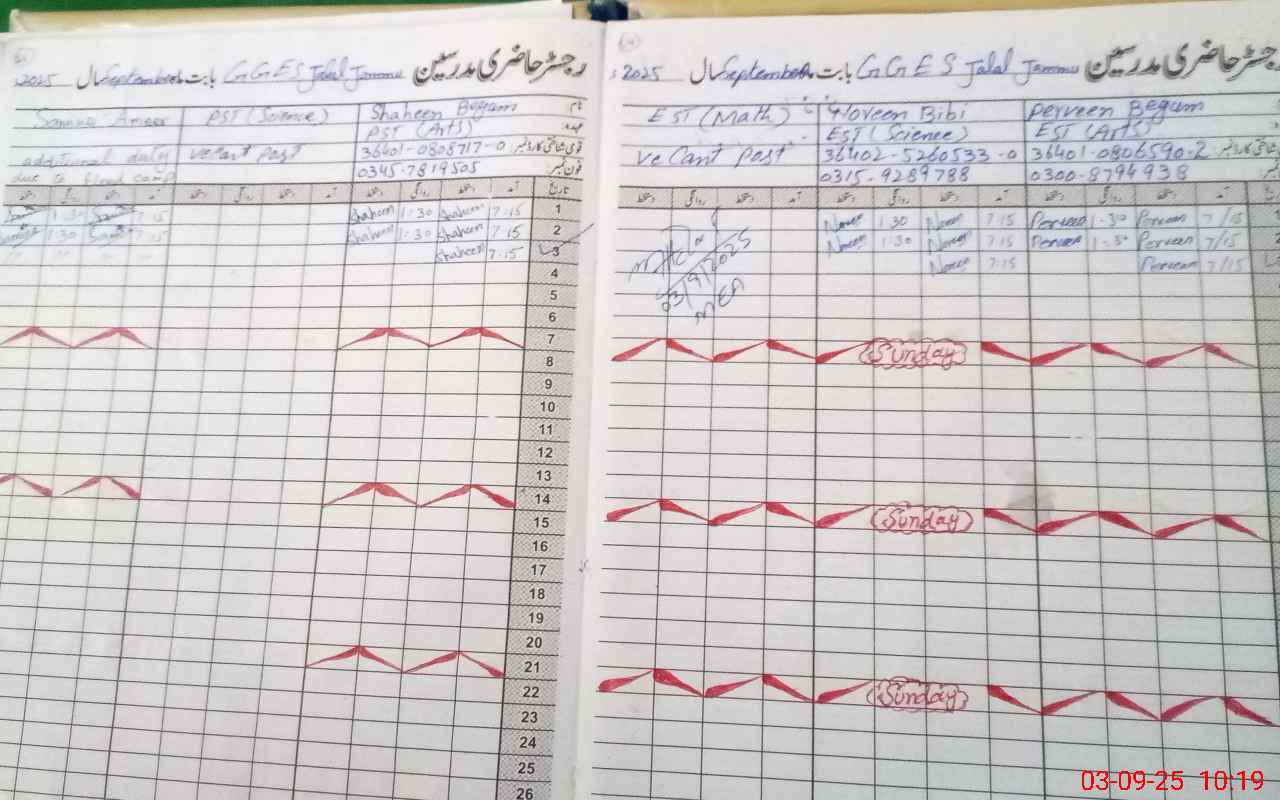 رجسٹر حاضری مدرسین GGES Jalal Jammu بابت September سال 2025
نام Shaheen Begum
Samina Ameer PST (Science) PST (Arts) عہدہ
additional duty veCant Post 36401-0808717-0 قومی شناختی کارڈ نمبر:
due to flood camp 0345-7819505 فون نمبر:
تاریخ آمد دستخط روانگی دستخط آمد دستخط روانگی دستخط آمد دستخط روانگی دستخط
1 7:15 Shaheen 1:30 Shaheen 7:15 1:30
2 7:15 Shaheen 1:30 Shaheen 7:15 1:30
3 7:15 Shaheen
4
5
6
7
8
9
10
11
12
13
14
15
16
17
18
19
20
21
22
23
24
25
26
رجسٹر حاضری مدرسین GGES Jalal Jammu بابت September سال 2025
EST (Math) Noveen Bibi Perveen Begum
EST (Science) EST (Arts)
veCant Post 36402-5260533-0 36401-0806590-2
0315-9289788 0300-8794938
آمد دستخط روانگی دستخط آمد دستخط روانگی دستخط آمد دستخط روانگی دستخط
1:30 7:15 Perveen 1-30 Perveen 7/15
1:30 7:15 Perveen 1-30 Perveen 7/15
7:15 Perveen 7/15
03/9/2025
MEA
Sunday
Sunday
Sunday
03-09-25 10:19